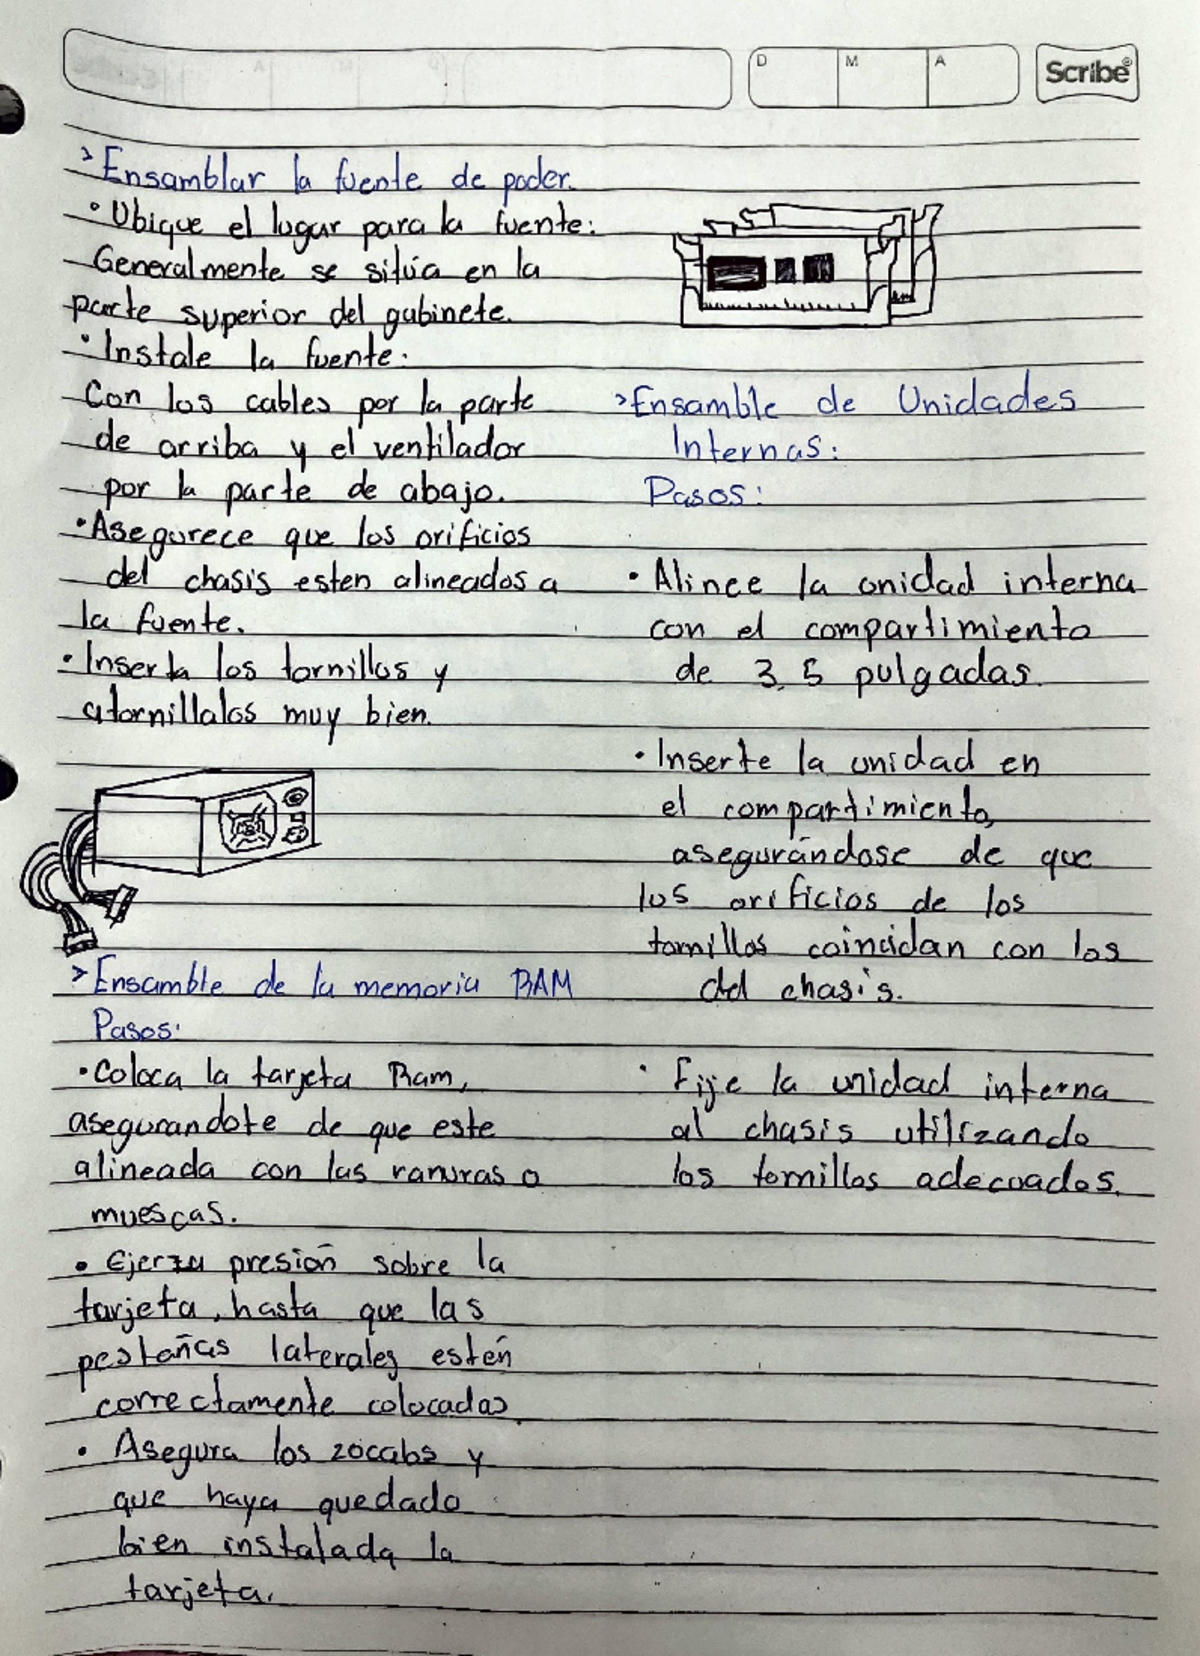 D M A Scribe®
>Ensamblar la fuente de poder.
•Ubique el lugar para la fuente:
Generalmente se sitúa en la
parte superior del gabinete.
•Instale la fuente:
Con los cables por la parte
de arriba y el ventilador
por la parte de abajo.
•Asegurece que los orificios
del chasis esten alineados a
la fuente.
•Inserta los tornillos y
atornillalos muy bien.
>Ensamble de la memoria RAM
Pasos:
•Coloca la tarjeta Ram,
asegurandote de que este
alineada con las ranuras o
muescas.
• Ejerza presión sobre la
tarjeta, hasta que las
pestañas laterales estén
correctamente colocadas.
• Asegura los zócalos y
que haya quedado
bien instalada la
tarjeta.
>Ensamble de Unidades
Internas:
Pasos:
• Alinee la unidad interna
con el compartimiento
de 3.5 pulgadas.
• Inserte la unidad en
el compartimiento,
asegurándose de que
los orificios de los
tornillos coincidan con los
del chasis.
• Fije la unidad interna
al chasis utilizando
los tornillos adecuados.